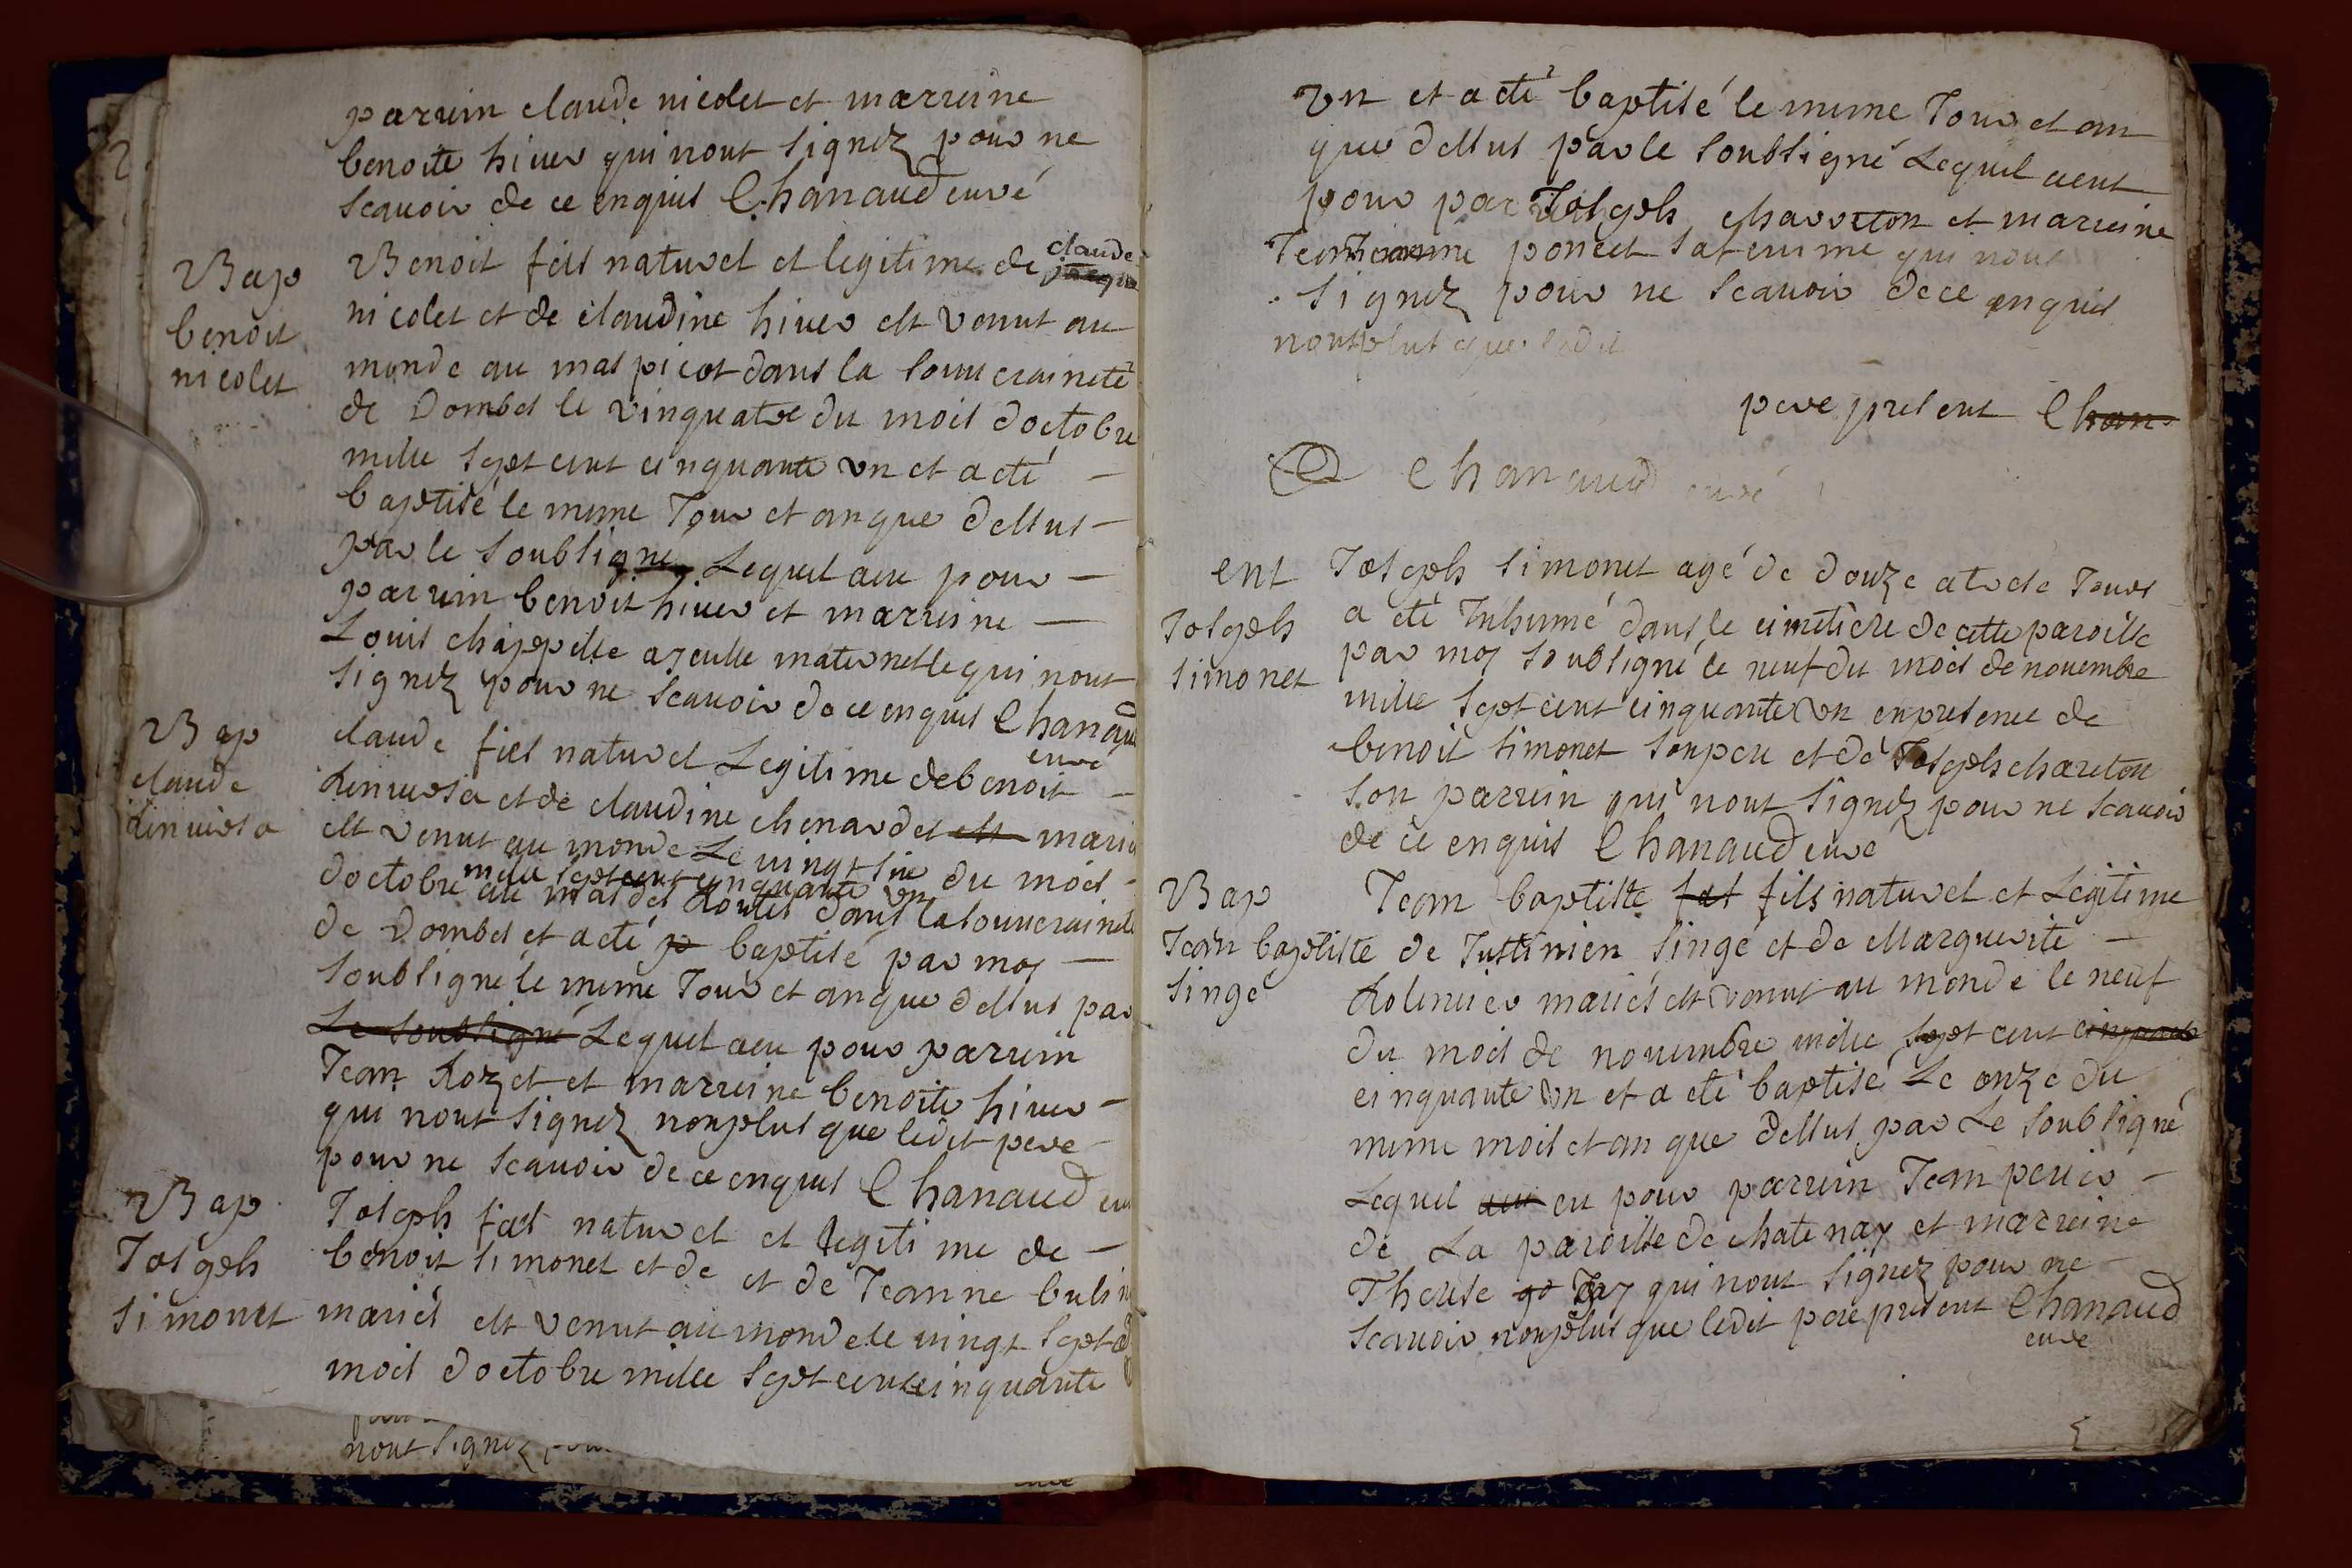 parrein claude nicolet et marreine
benoite hiuer qui nont signez pour ne
scauoir de ce enquis Chanaud curé
Bap
benoit
nicolet
Benoit fils naturel et legitime de claude jacque
nicolet et de claudine hiuer est venut au
monde au mas picot dans la souueraineté
de Dombes le vinquatre du mois doctobre
mille sept cent cinquante vn et a eté
baptisé le meme Jour et an que dessus
par le soubsigné Lequel a eu pour
parrein benoit hiuer et marreine
Louise chappelle ayeulle maternelle qui nont
signez pour ne scauoir de ce enquis Chanaud
curé
Bap
claude
claude fils naturel Legitime de benoit
et de claudine chenardet est mariés
est venut au monde Le vingt six du mois
doctobre mille sept cent cinquante vn
au mas des dans la souueraineté
de Dombes et a eté p baptisé par moy
soubsigné le meme Jour et an que dessus par
Le soubsigné Lequel a eu pour parrein
Jean Rozet et marreine benoite hiuer
qui nont signez nonplus que ledit pere
pour ne scauoir de ce enquis Chanaud cu
Bap
Joseph
simonet
Joseph fils naturel et legitime de
benoit simonet et de et de Jeanne
mariés est venut au monde le vingt sept d
mois doctobre mille sept cent cinquante
nont signez
vn et a eté baptisé le meme Jour et an
que dessus par le soubsigné Lequel aeut
pour par Joseph charreton et marreine
Jeanne poncet sa femme qui nont
signez pour ne scauoir de ce enquis
nonplus que ledit
pere present Chan
Chanaud curé
ent
Joseph
simonet
Joseph simonet agé de douze a trese Jours
a eté Inhumé dans le cimetiere de cette paroisse
par moy soubsigné le neuf du mois de nouembre
mille sept cent cinquante vn en presence de
benoit simonet son pere et de Joseph chareton
son parrein qui nont signez pour ne scauoir
de ce enquis Chanaud curé
Bap
Jean baptiste
singe
Jean baptiste fils naturel et Legitime
de Justinien singe et de Marguerite
mariés est venut au monde le neuf
du mois de nouembre mille sept cent cinquante
cinquante vn et a eté baptisé Le onze du
meme mois et an que dessus par Le soubsigné
Lequel eu pour parrein Jean
de La paroisse de chatenay et marreine
Therese qui nont signez pour ne
scauoir nonplus que ledit pere present Chanaud
curé